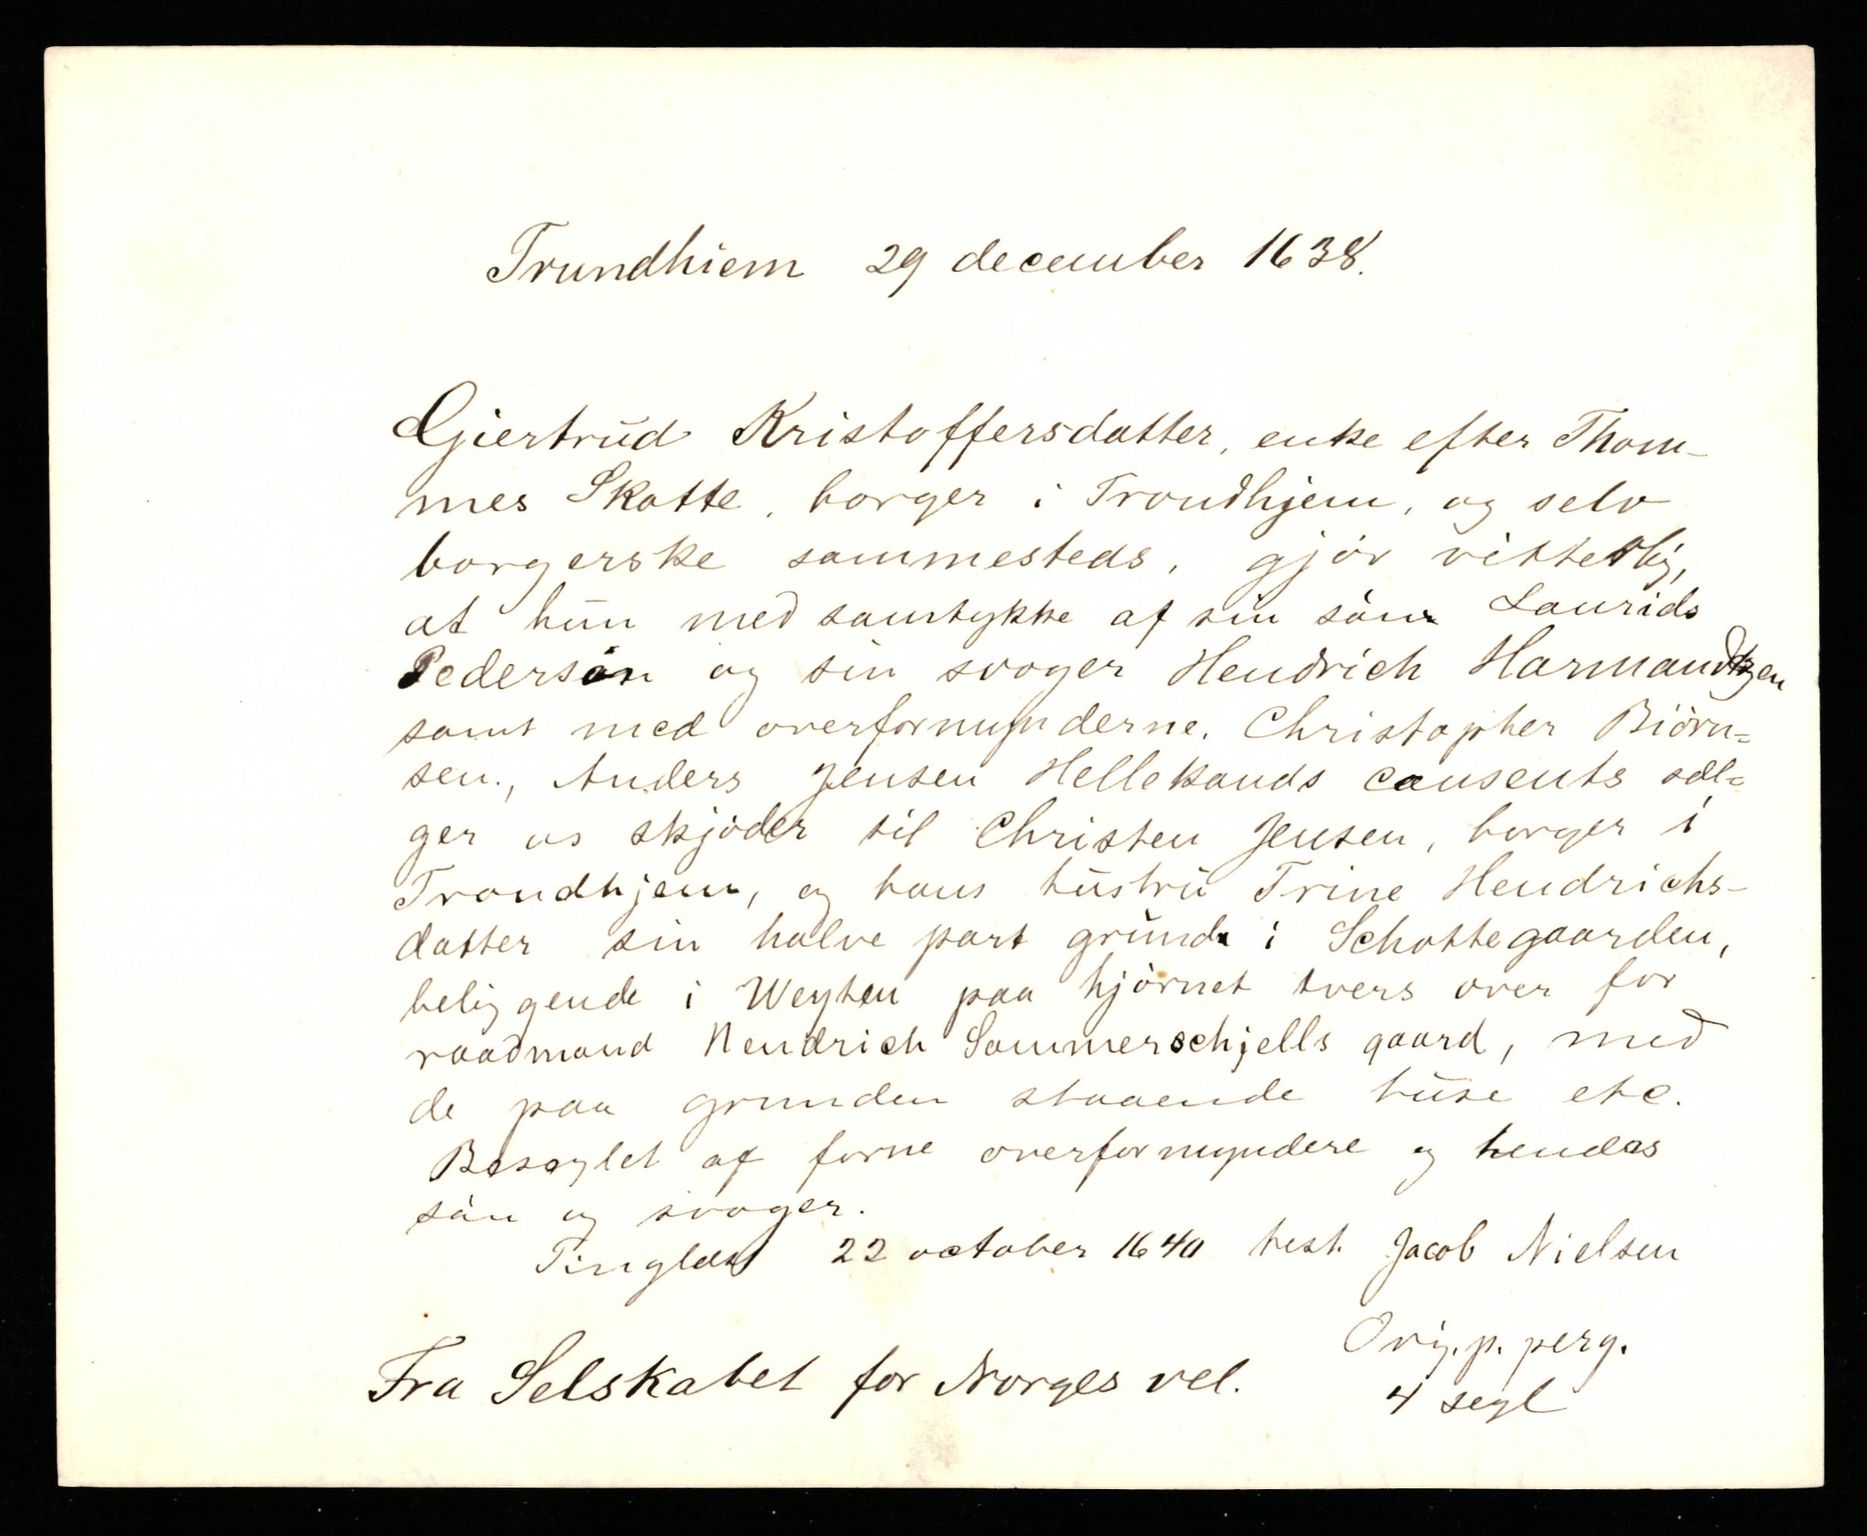 Trundhiem 29 december 1638.
Gjertrud Kristoffersdatter, enke efter Thom-
mes Skotte, borger i Trondhjem, og selv
borgerske sammesteds, gjør vitterlig,
at hun med samtykke af sin søn Laurids
Pedersøn og sin svoger Hendrich Harmandtzen
samt med overformynderne, Christopher Biörn=
sen, Anders Jensen Hellekands consents sæl=
ger os skjøder til Christen Jensen, borger i
Trondhjem, og hans hustru Trine Hendrichs-
datter sin halve part grund i Schottegaarden,
beliggende i Weyten paa hjørnet tvers over for
raadmand Hendrich Sommerschjells gaard, med
de paa grunden staaende huse etc.
Beseglet af forne overformyndere og hendes
søn og svoger.
Tinglæst 22 october 1640 test. Jacob Nielsen
Orig. p. perg.
4 segl
Fra Selskabet for Norges vel.